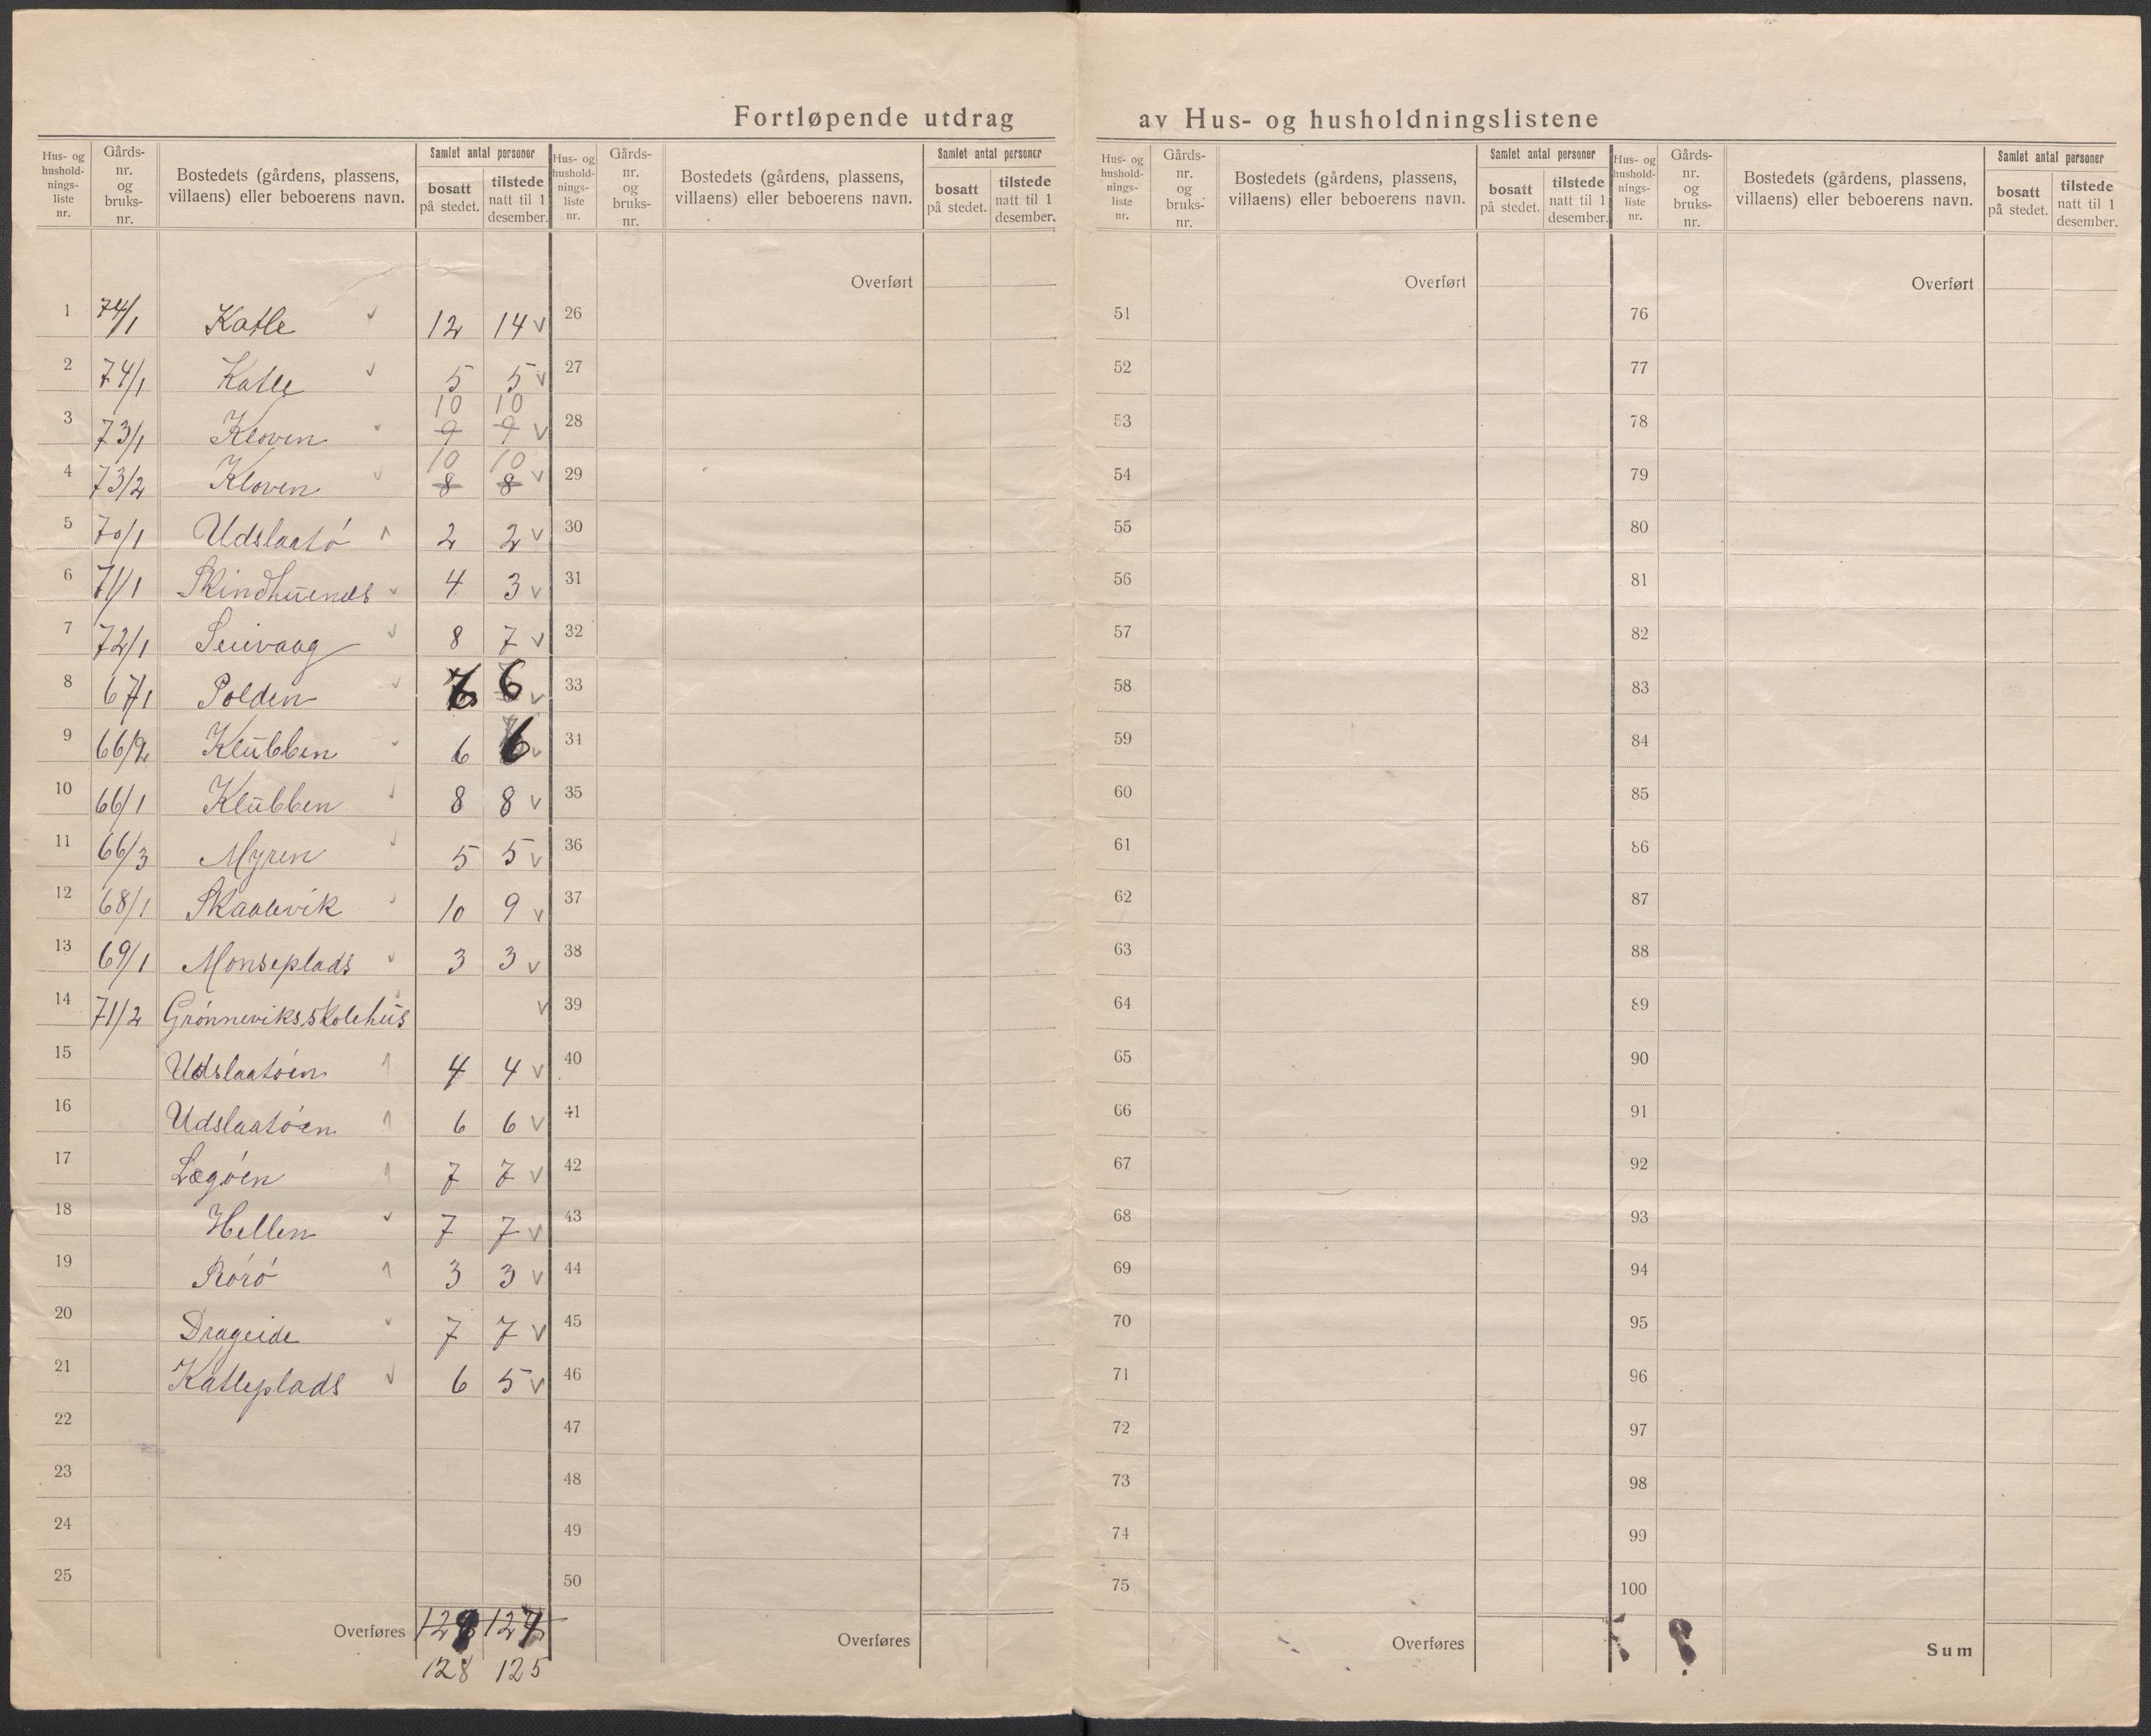 Fortløpende utdrag av Hus- og husholdningslistene
Hus- og hushold-nings-liste nr. Gårds-nr. og bruks-nr. Bostedets (gårdens, plassens, villaens) eller beboerens navn. Samlet antal personer bosatt på stedet. tilstede natt til 1 desember.
1 74/1 Katle 12 14
2 74/1 Katle 5 5
10 10
3 73/1 Kloven 9 9
10 10
4 73/2 Kloven 8 8
5 70/1 Udslaatö 2 2
6 71/1 Skindhuenes 4 3
7 72/1 Seievaag 8 7
8 67/1 Polden 6 6
9 66/2 Klubben 6 6
10 66/1 Klubben 8 8
11 66/3 Myren 5 5
12 68/1 Skaalevik 10 9
13 69/1 Monseplads 3 3
14 71/2 Grönneviks skolehus
15 Udslaatöen 4 4
16 Udslaatöen 6 6
17 Lægöen 7 7
18 Hellen 7 7
19 Rörö 3 3
20 Drageide 7 7
21 Katleplads 6 5
22
23
24
25
Overføres
128 125
Hus- og hushold-nings-liste nr. Gårds-nr. og bruks-nr. Bostedets (gårdens, plassens, villaens) eller beboerens navn. Samlet antal personer bosatt på stedet. tilstede natt til 1 desember.
Overført
26
27
28
29
30
31
32
33
34
35
36
37
38
39
40
41
42
43
44
45
46
47
48
49
50
Overføres
Hus- og hushold-nings-liste nr. Gårds-nr. og bruks-nr. Bostedets (gårdens, plassens, villaens) eller beboerens navn. Samlet antal personer bosatt på stedet. tilstede natt til 1 desember.
Overført
51
52
53
54
55
56
57
58
59
60
61
62
63
64
65
66
67
68
69
70
71
72
73
74
75
Overføres
Hus- og hushold-nings-liste nr. Gårds-nr. og bruks-nr. Bostedets (gårdens, plassens, villaens) eller beboerens navn. Samlet antal personer bosatt på stedet. tilstede natt til 1 desember.
Overført
76
77
78
79
80
81
82
83
84
85
86
87
88
89
90
91
92
93
94
95
96
97
98
99
100
Sum